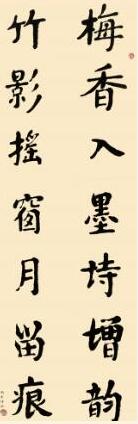 梅香入墨诗增韵
竹影摇窗月留痕